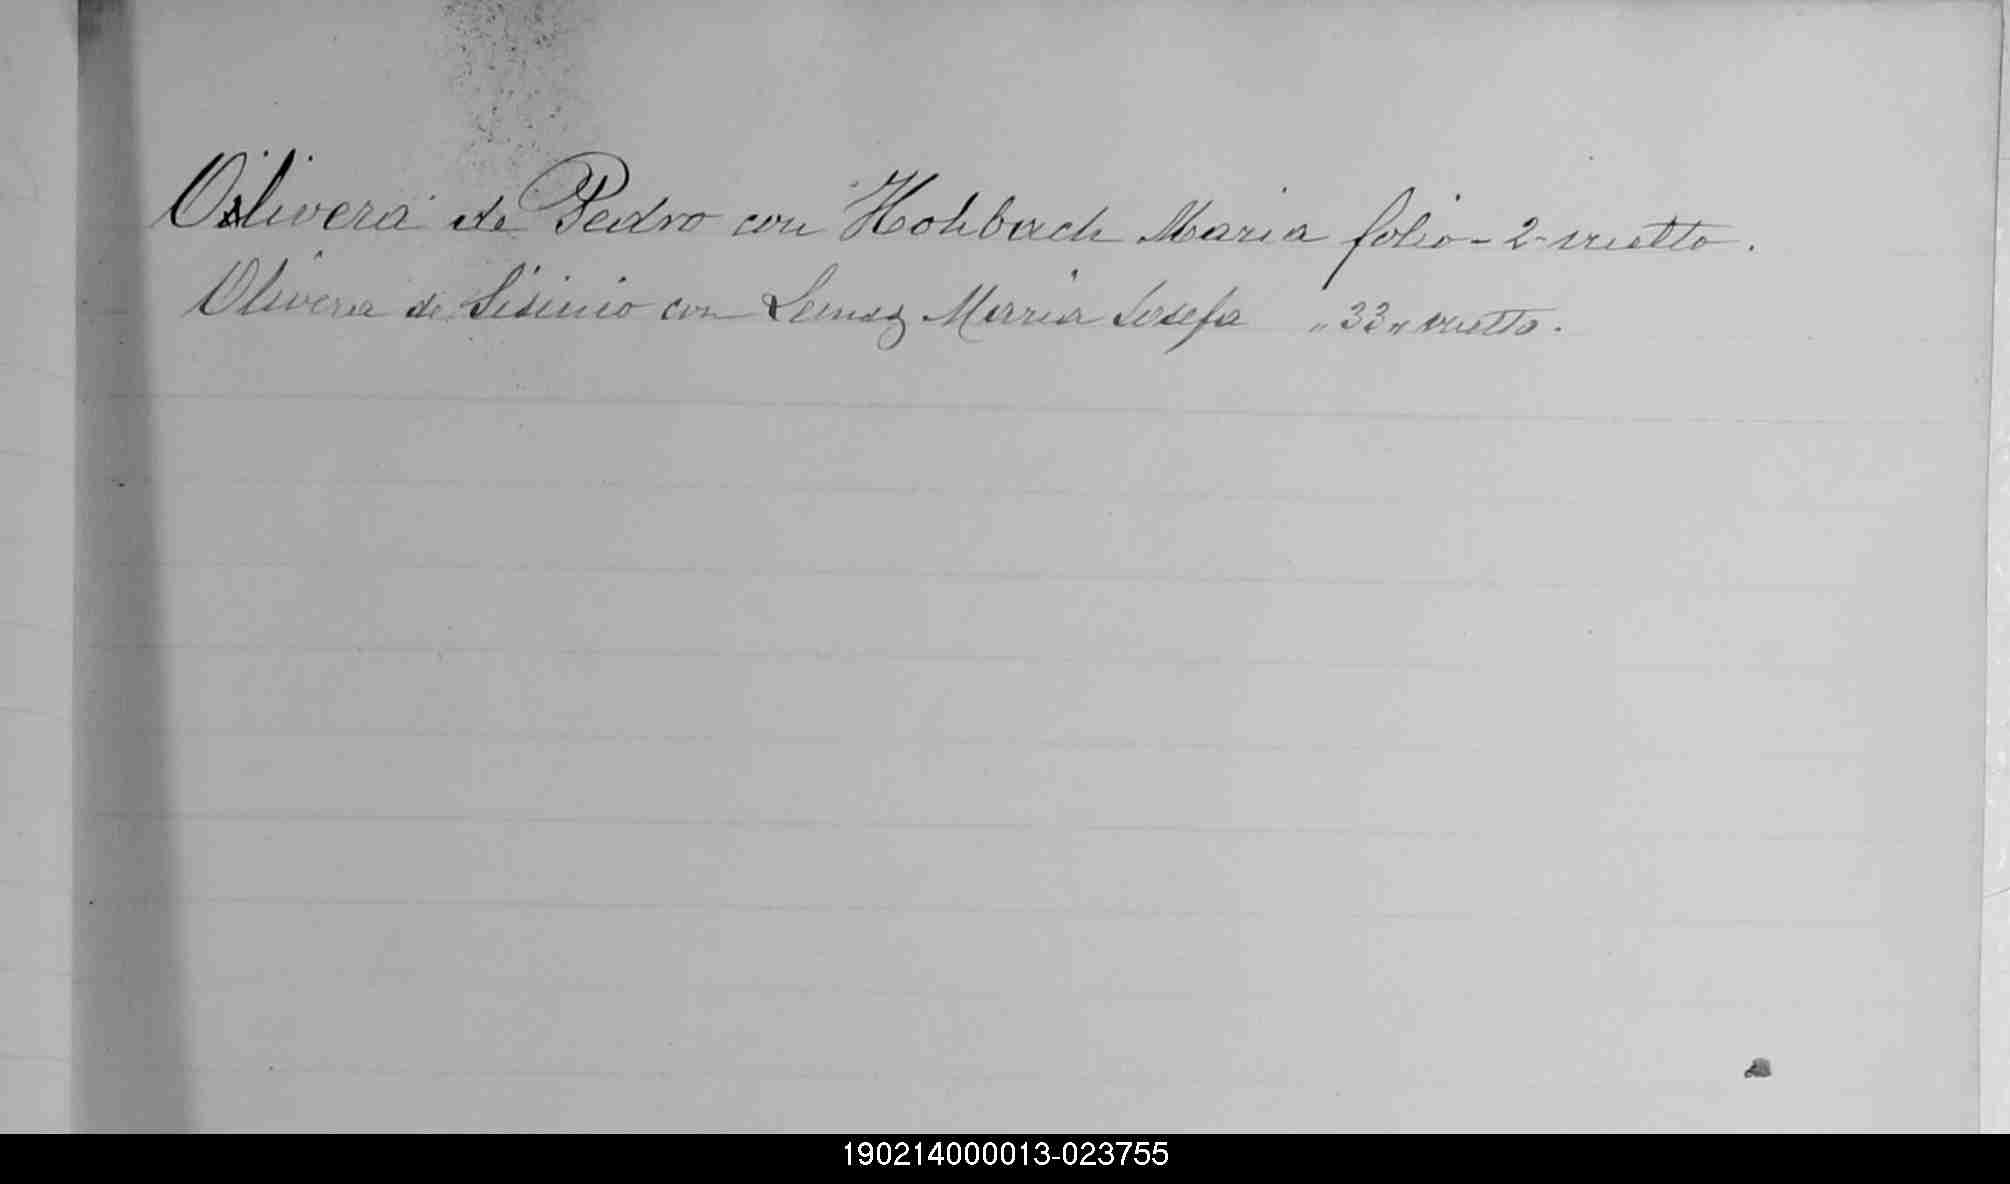 Olivera de Pedro con Hohbach Maria folio - 2 - vuelto.
Olivera de Sisinio con Lemoz Maria Josefa " 33 " vuelto.
190214000013-023755